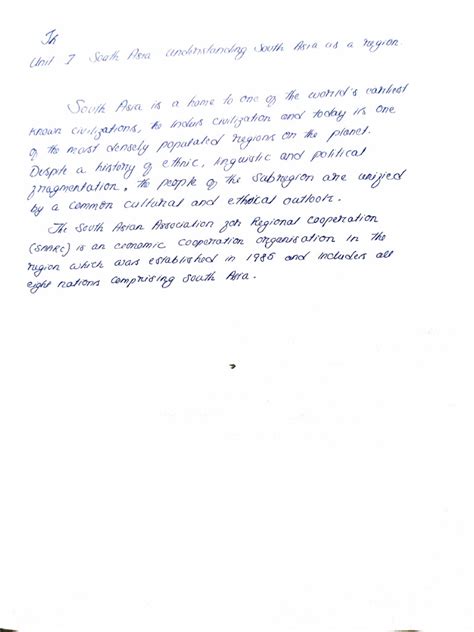 Th
Unit I South Asia Understanding South Asia as a region
South Asia is a home to one of the world's earliest
known civilizations, the Indus civilization and today is one
of the most densely populated regions on the planet.
Despite a history of ethnic, linguistic and political
fragmentation, the people of the subregion are unified
by a common cultural and ethical outlook.
The South Asian Association for Regional Cooperation
(SAARC) is an economic cooperation organisation in the
region which was established in 1985 and includes all
eight nations comprising South Asia.